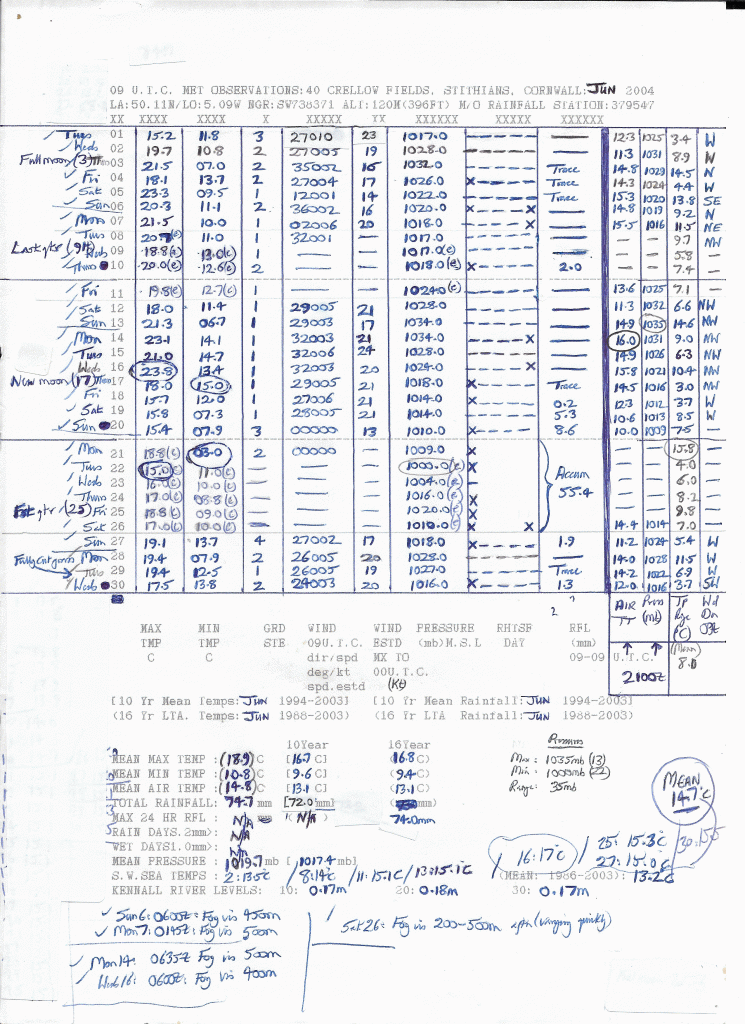 09 U.T.C. MET OBSERVATIONS:40 CRELLOW FIELDS, STITHIANS, CORNWALL: JUN 2004
LA:50.11N/LO:5.09W NGR:SW738371 ALT:120M(396FT) M/O RAINFALL STATION:379547
XX XXXX XXXX X XXXXX XX XXXXXX XXXXX XXXXXX
Tues 01 15.2 11.8 3 27010 23 1017.0 ------ —— 12.3 1025 3.4 W
Weds 02 19.7 10.8 2 27005 19 1028.0 ------ —— 11.3 1031 8.9 W
Full moon (3) 03 21.5 07.0 2 35002 16 1032.0 ------ Trace 14.8 1029 14.5 N
Fri 04 18.1 13.7 2 27004 17 1026.0 ------ Trace 14.3 1024 4.4 W
Sat 05 23.3 09.5 1 12001 14 1022.0 ------ Trace 15.3 1020 13.8 SE
Sun 06 20.3 11.1 2 36002 16 1020.0 -----X —— 14.8 1019 9.2 N
Mon 07 21.5 10.0 1 02006 20 1018.0 -----X —— 15.5 1016 11.5 NE
Tues 08 (e) 11.0 1 32001 1017.0 —— — — 9.7 NW
Last qtr (9th) Weds 09 18.8(e) 13.0(e) 1017.0(e) — — 5.8 —
Thurs 10 20.0(e) 12.6(e) 2 1018.0(e) X 2.0 — — 7.4 —
Fri 11 19.8(e) 12.7(e) 1 1024.0(e) —— 13.6 1025 7.1 —
Sat 12 18.0 11.4 1 29005 21 1028.0 ------ —— 11.3 1032 6.6 NW
Sun 13 21.3 06.7 1 29003 17 1034.0 ------ —— 14.9 1035 14.6 NW
Mon 14 23.1 14.1 1 32003 21 1034.0 -----X —— 16.0 1031 9.0 NW
Tues 15 21.0 14.7 1 32006 24 1028.0 ------ —— 14.9 1026 6.3 NW
Weds 16 23.8 13.4 1 32003 20 1024.0 -----X —— 15.8 1021 10.4 NW
New moon (17) Thurs 17 18.0 15.0 1 29005 21 1018.0 X----- Trace 14.5 1016 3.0 NW
Fri 18 15.7 12.0 1 27006 21 1014.0 X----- 0.2 12.3 1012 3.7 W
Sat 19 15.8 07.3 1 28005 21 1014.0 X----- 5.3 10.6 1013 8.5 W
Sun 20 15.4 07.9 3 00000 13 1010.0 X----- 8.6 10.0 1009 7.5 —
Mon 21 18.8(e) 03.0 2 00000 1009.0 X — — 15.8 —
Tues 22 15.0(e) 11.0(e) — — — 1000.0(e) X — — 4.0 —
Weds 23 16.0(e) 10.0(e) — — — 1004.0(e) X Accum — — 6.0 —
Thurs 24 17.0(e) 08.8(e) — — — 1016.0(e) X 55.4 — — 8.2 —
Fst qtr (25) Fri 25 18.8(e) 09.0(e) — — — 1020.0(e) X — — 9.8 —
Sat 26 17.0(e) 10.0(e) — — — 1010.0(e) X X 14.4 1014 7.0 —
Sun 27 19.1 13.7 4 27002 17 1018.0 X----- 1.9 11.2 1024 5.4 W
Mon 28 19.4 07.9 2 26005 20 1028.0 ------ —— 14.0 1028 11.5 W
Tues 29 19.4 12.5 1 26005 19 1027.0 ------ Trace 14.2 1022 6.9 W
Weds 30 17.5 13.8 2 24003 20 1016.0 X----- 1.3 12.0 1016 3.7 SW
MAX MIN GRD WIND WIND PRESSURE RHTSF RFL AIR Press Tp Wd
TMP TMP STE 09U.T.C. ESTD (mb)M.S.L DAY (mm) TT (mb) Rge Dn
C C dir/spd MX TO 09-09 U.T.C. (°C)
deg/kt 00U.T.C. (Mean)
spd.estd (Kt) 2100Z 8.0
[10 Yr Mean Temps: JUN 1994-2003] [10 Yr Mean Rainfall: JUN 1994-2003]
(16 Yr LTA. Temps: JUN 1988-2003) (16 Yr LTA Rainfall: JUN 1988-2003)
10Year 16Year Pressures
MEAN MAX TEMP :(18.9)C [16.7 C] (16.8 C) Max : 1035mb (13)
MEAN MIN TEMP :(10.8)C [9.6 C] (9.4 C) Min : 1000mb (22)
MEAN AIR TEMP :(14.8)C [13.1 C] (13.1 C) Range : 35mb
TOTAL RAINFALL: 74.7 mm [72.0 mm]
MAX 24 HR RFL : N/A (N/A) 74.0mm
RAIN DAYS.2mm): N/A
WET DAYS1.0mm): N/A
MEAN PRESSURE :1019.7mb [1017.4mb]
MEAN 14.7°C
S.W.SEA TEMPS : 2:13.5C /8:14°C /11:15.1C /13:15.1°C 16:17°C / 25: 15.3°C 27:15.0C /30:15.5
(MEAN: 1986-2003): 13.2C
KENNALL RIVER LEVELS: 10: 0.17m 20: 0.18m 30: 0.17m
Sun 6: 0600Z: Fog vis 450m
Mon 7: 0145Z: Fog vis 500m
Mon 14: 0635Z Fog vis 500m
Weds 16: 0600Z: Fog vis 400m
Sat 26: Fog vis 200-500m aftn (varying quickly)